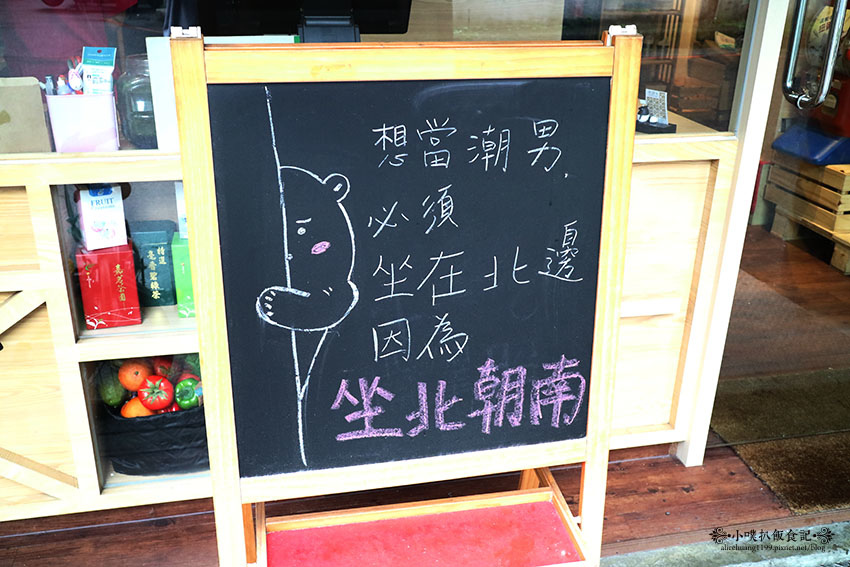 想當潮男.
必須
坐在北邊
因為
坐北朝南
FRUIT
小噗扒飯食記
alicehuang1199.pixnet.net/blog